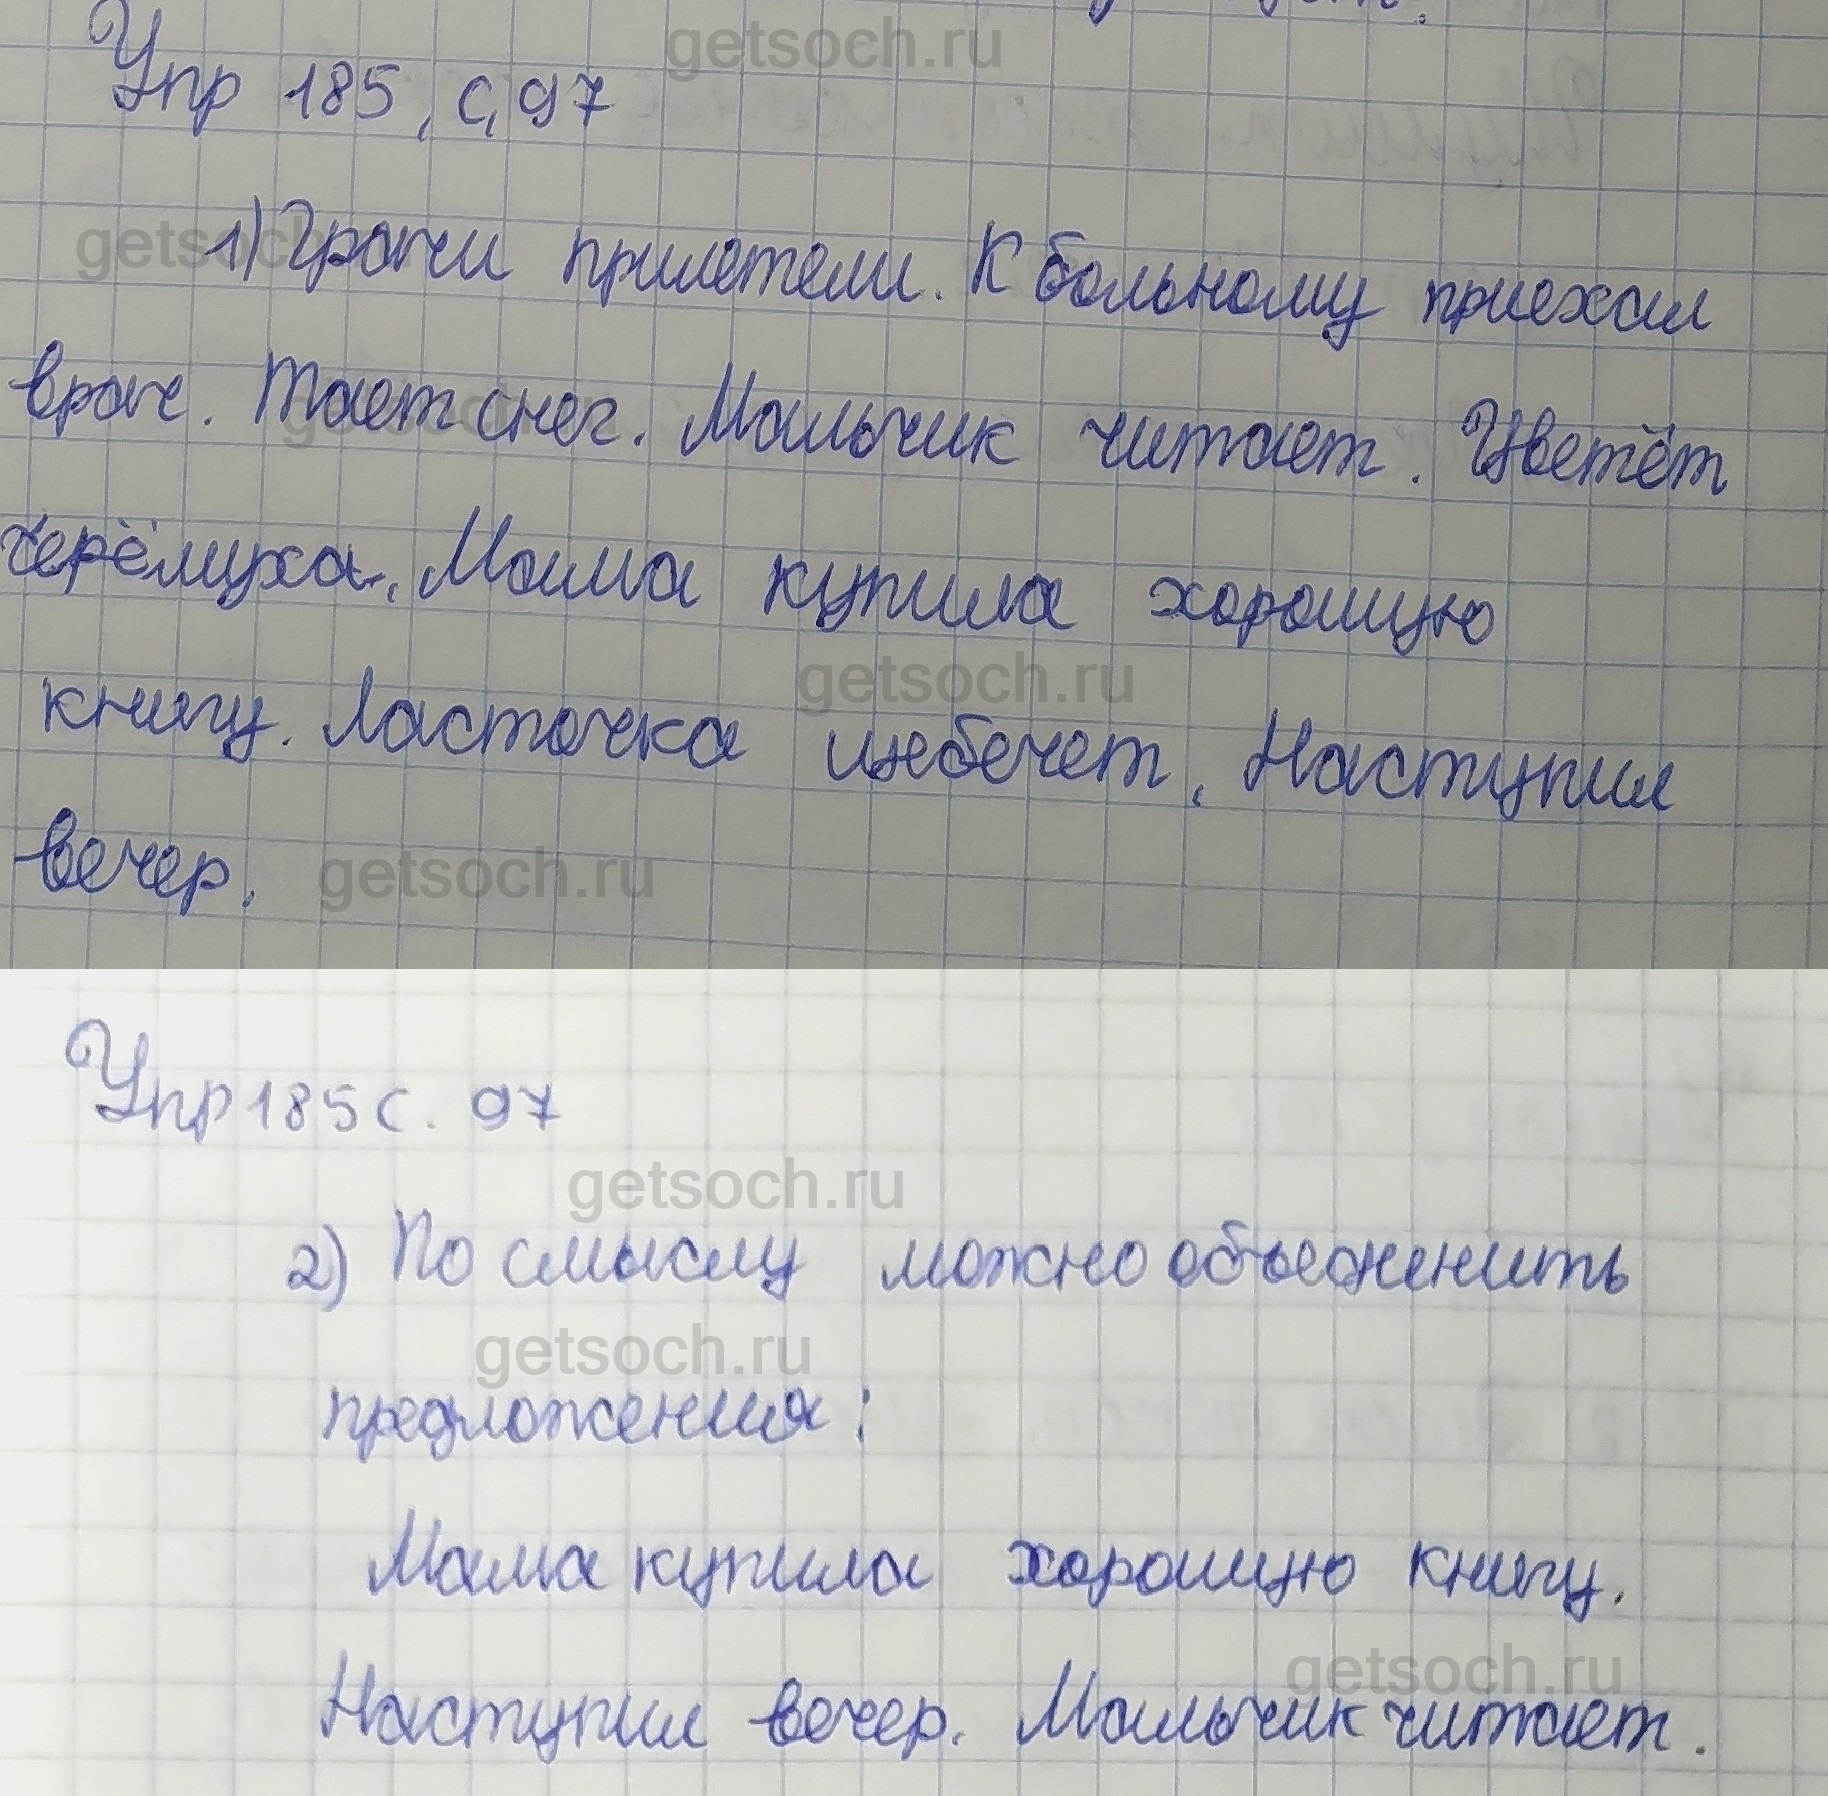 getsoch.ru
Упр 185, с. 97
1) Грачи прилетели. К больному приехал
врач. Тает снег. Мальчик читает. Цветёт
черёмуха. Мама купила хорошую
getsoch.ru
книгу. Ласточка щебечет. Наступил
вечер.
getsoch.ru
Упр 185 с. 97
getsoch.ru
2) По смыслу можно объеденить
getsoch.ru
предложения:
Мама купила хорошую книгу.
getsoch.ru
Наступил вечер. Мальчик читает.